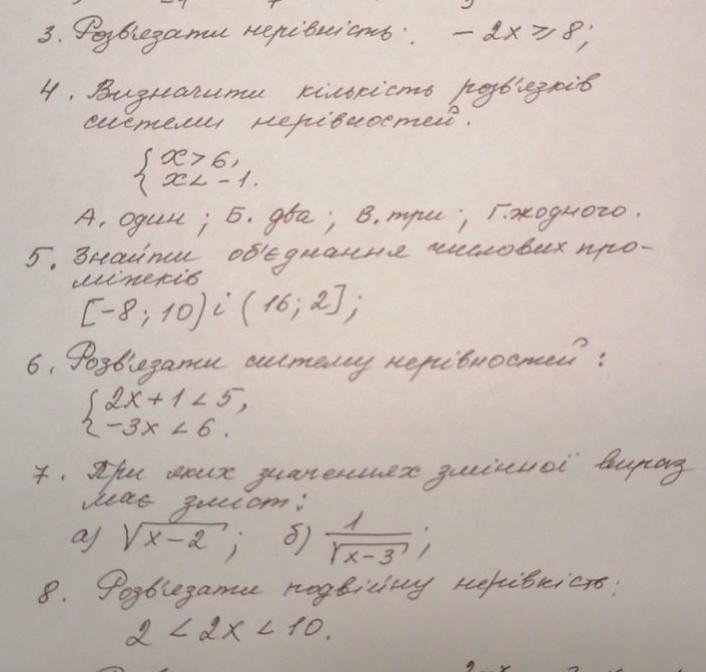 3. Розв'язати нерівність: -2x ⩾ 8;
4. Визначити кількість розв'язків
системи нерівностей.
{ x > 6,
{ x < -1.
А. один; Б. два; В. три; Г. жодного.
5. Знайти об'єднання числових про-
міжків
[-8; 10) і (16; 2];
6. Розв'язати систему нерівностей:
{ 2x + 1 < 5,
{ -3x < 6.
7. При яких значеннях змінної вираз
має зміст:
а) √(x-2); б) 1/√(x-3);
8. Розв'язати подвійну нерівність:
2 < 2x < 10.